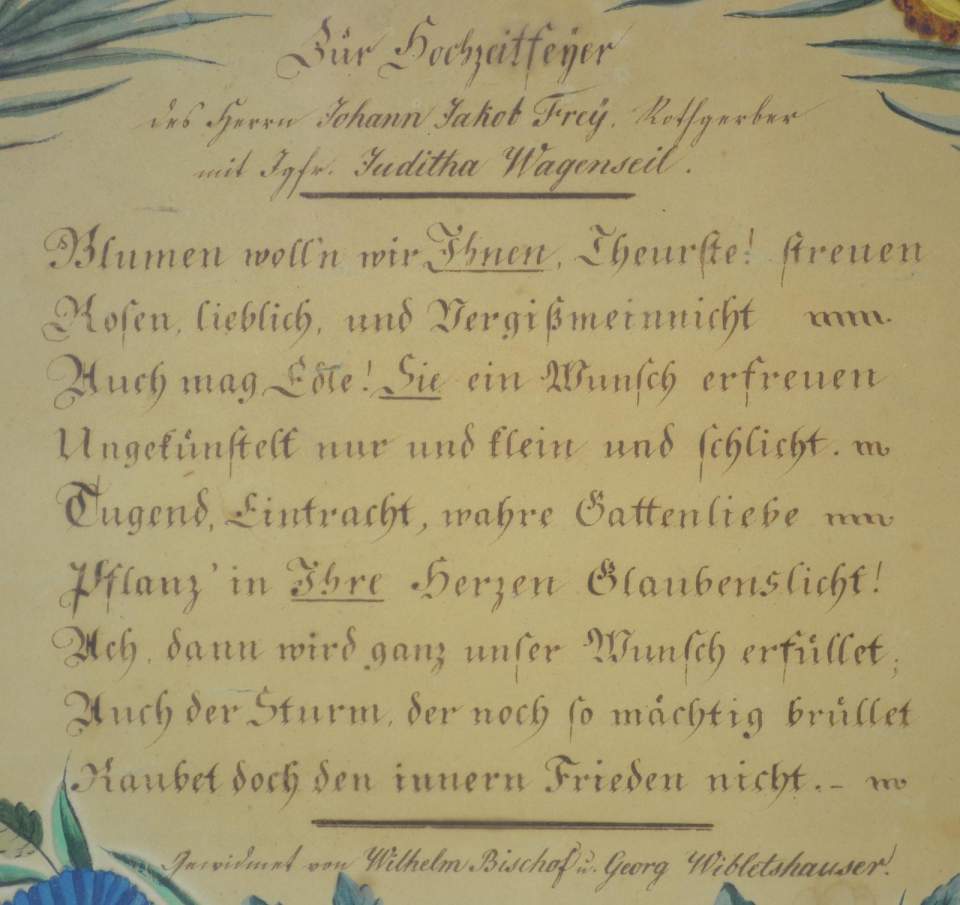 Zur Hochzeitfeyer
des Herrn Johann Jakob Frey, Rothgerber
mit Jgfr. Juditha Wagenseil.
Blumen woll'n wir Ihnen, Theurste! streuen
Rosen, lieblich, und Vergißmeinnicht
Auch mag Edle! Sie ein Wunsch erfreuen
Ungekünstelt nur und klein und schlicht.
Tugend, Eintracht, wahre Gattenliebe
Pflanz' in Ihre Herzen Glaubenslicht!
Ach, dann wird ganz unser Wunsch erfüllet;
Auch der Sturm, der noch so mächtig brüllet
Raubet doch den innern Frieden nicht.-
Gewidmet von Wilhelm Bischof u. Georg Wibletshauser.